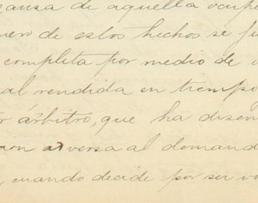 causa de aquella ocup
de estos hechos se fu
completa por medio de
al rendida en tiempo
árbitro, que ha disen
adversa al demand
cuando decide por ser